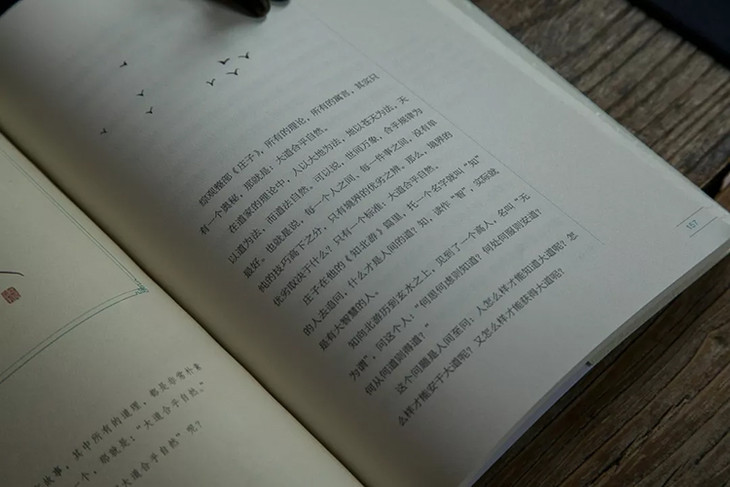 故事,其中所有的道理,都是非常朴素
一个,那就是:“大道合乎自然。”
大道合乎自然”呢?
综观整部《庄子》,所有的理论,所有的寓言,其实只
有一个奥秘,那就是:大道合乎自然。
在道家的理论中,人以大地为法,地以苍天为法,天
以道为法,而道法自然。可以说,世间万象,合乎规律为
最好。也就是说,每一个人之间,每一件事之间,没有单
纯的技巧高下之分,只有境界的优劣之辨。那么,境界的
优劣取决于什么?只有一个标准:大道合乎自然。
庄子在他的《知北游》篇里,托一个名字就叫“知”
的人去追问,什么才是人间的道?知,读作“智”,实际就
是有大智慧的人。
知向北游历到玄水之上,见到了一个高人,名叫“无
为谓”,问这个人:“何思何虑则知道?何处何服则安道?
何从何道则得道?”
这个问题是人间至问:人怎么样才能知道大道呢?怎
么样才能安于大道呢?又怎么样才能获得大道呢?
157